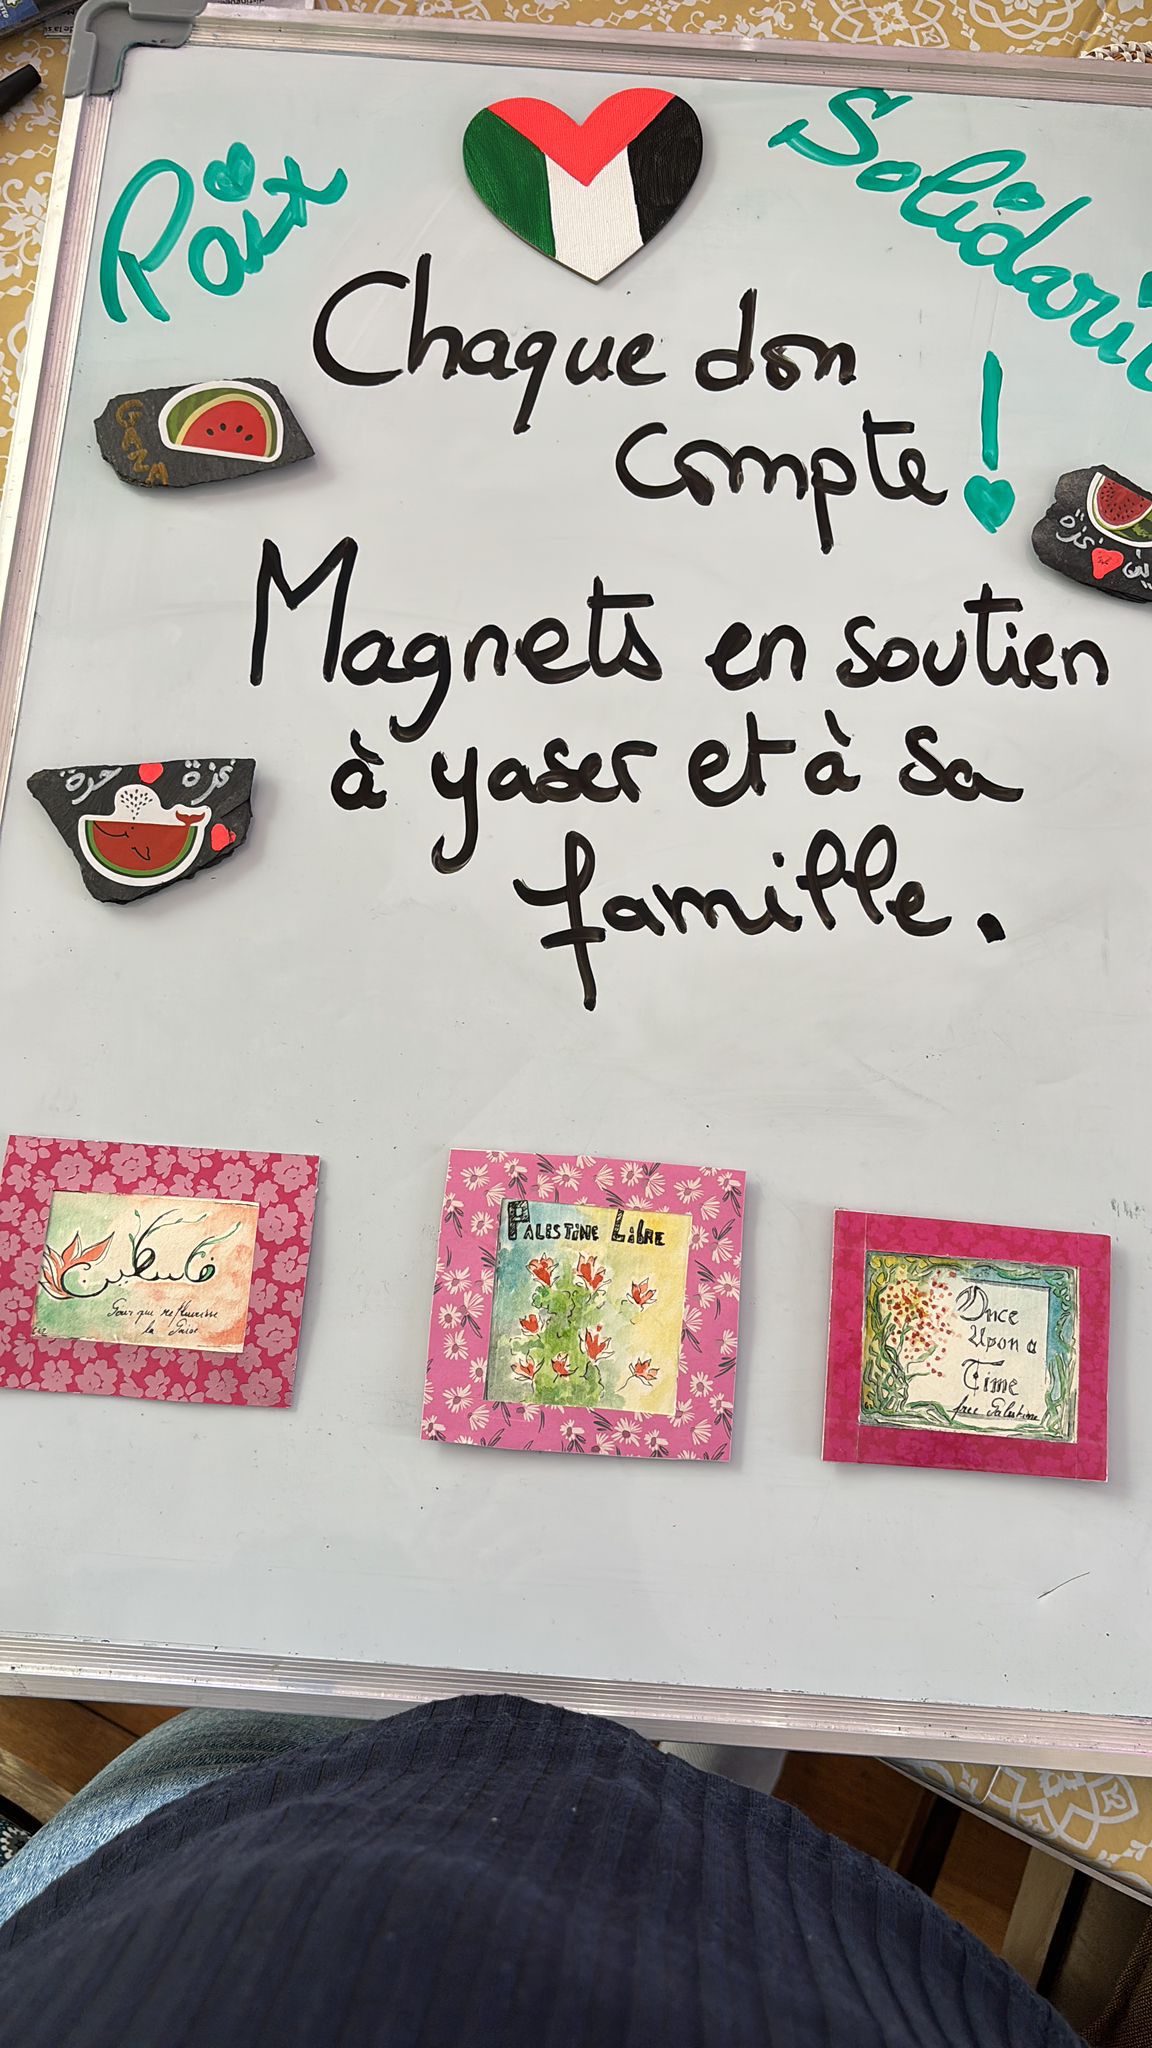 Paix
Solidari
Chaque don
compte !
GAZA
غزة
Magnets en soutien
à yaser et à sa
famille.
غزة حرة
فلسطين
Pour que refleurisse
la Paix
PALESTINE LIBRE
Once
Upon a
Time
free Palestine